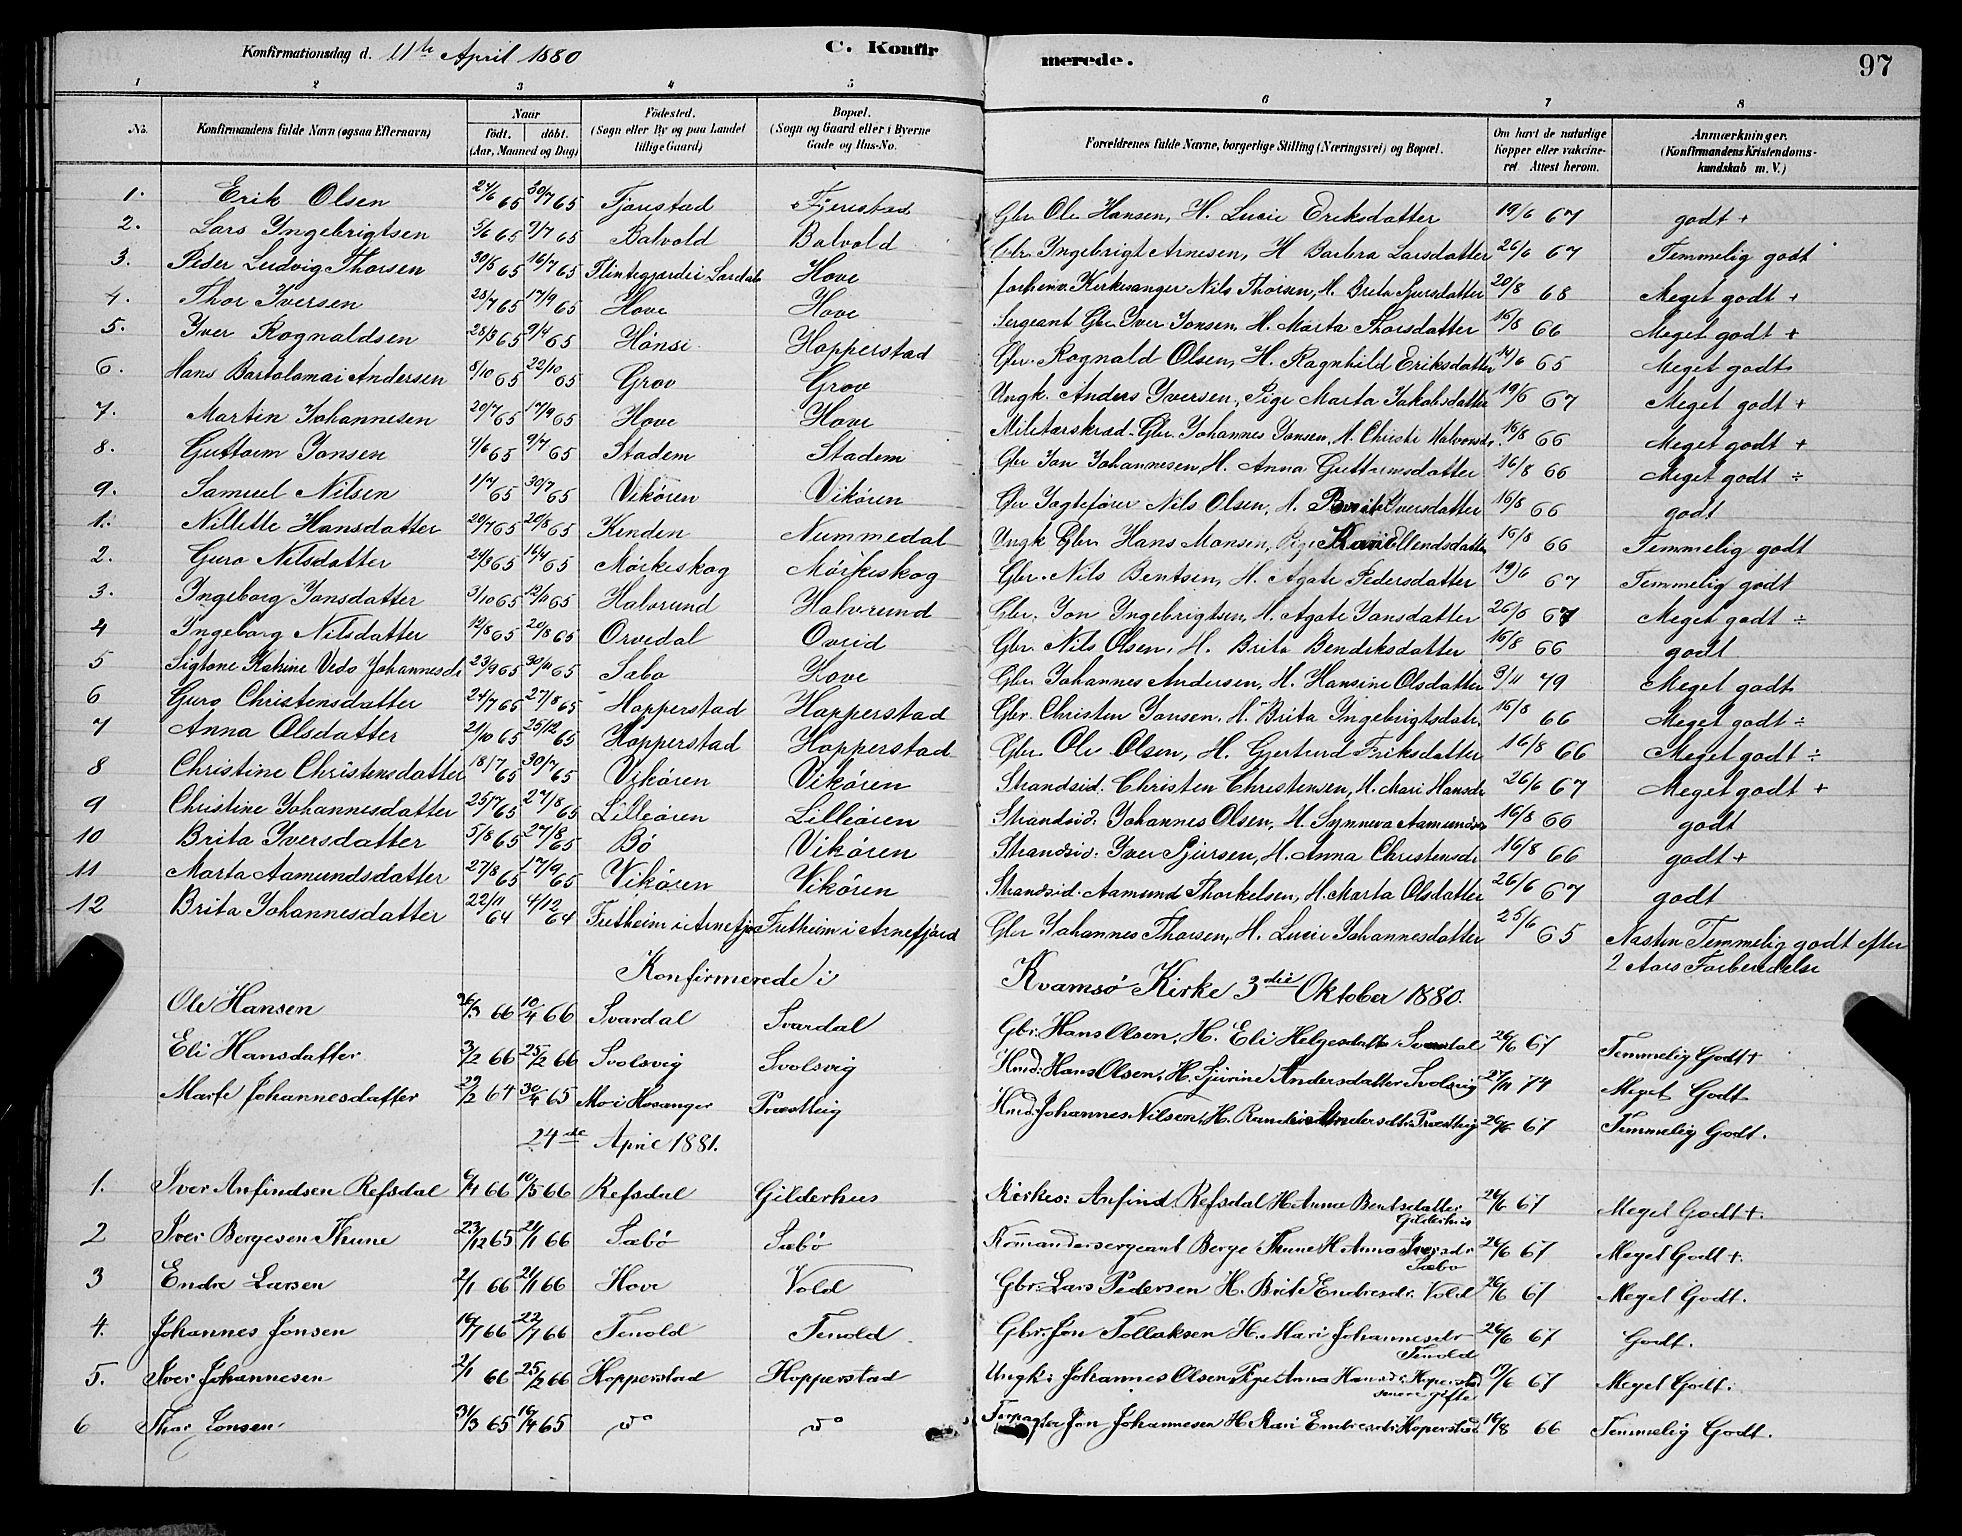 Konfirmationsdag d. 11te April 1880 C. Konfir merede. 97
1 2 3 4 5 6 7 8
No. Konfirmandens fulde Navn (ogsaa Efternavn) Naar født. døbt. (Aar, Maaned og Dag) Fødested. (Sogn eller By og paa Landet tillige Gaard) Bopæl. (Sogn og Gaard eller i Byerne Gade og Hus-No. Forældrenes fulde Navne, borgerlige Stilling (Næringsvei) og Bopæl. Om havt de naturlige Kopper eller vakcineret Attest herom. Anmærkninger. (Konfirmandens Kristendomskundskab m. V.)
1. Erik Olsen 24/6 65 30/7 65 Tjærestad Gbr. Ole Hansen, H. Lucie Eriksdatter 19/6 67 godt +
2. Lars Yngebrigtsen 5/6 65 9/7 65 Balvold Balvold Gbr. Yngebrigt Arnesen, H Barbra Larsdatter 26/6 67 Temmelig godt
3. Peder Ludvig Thorsen 30/5 65 16/7 65 Flintegjærdei Lærdal Hove forhenv. Kirkesanger Nils Thorsen, H. Brita Sjursdatter 20/8 68 Meget godt +
4. Thor Yversen 28/7 65 17/9 65 Hove Hove Sergeant Gbr. Yver Jonsen, H. Marta Thorsdatter 16/8 66 Meget godt +
5. Yver Rognaldsen 28/3 65 9/4 65 Hønsi Hopperstad Gbr. Rognald Olsen, H. Ragnhild Eriksdatter 14/6 65 Meget godt
6. Hans Bartolomai Andersen 8/10 65 22/10 65 Grov Grov Ungk. Anders Yversen, Pige Marta Jakobsdatter 19/6 67 Meget godt +
7. Martin Johannesen 20/7 65 17/9 65 Hove Hove Gbr. Johannes Jonsen, H. Christi 16/8 66 Meget godt +
8. Guttorm Jonsen 4/6 65 9/7 65 Stadem Stadem Gbr Jon Johannesen, H. Anna Guttormsdatter 16/8 66 Meget godt ÷
9. Samuel Nilsen 1/7 65 30/7 65 Vikøren Vikøren Gbr Jagtefører Nils Olsen, H. Brita Iversdatter 16/8 66 godt
1. Nillette Hansdatter 20/7 65 20/8 65 Kinden Nummedal Ungk Gbr. Hans Monsen, Pige Kari Ellendsdatter 16/8 66 Temmelig godt
2. Guro Nilsdatter 24/3 65 16/4 65 Mørkeskog Mørkeskog Gbr. Nils Bentsen, H. Agate Pedersdatter 19/6 67 Temmelig godt
3. Yngeborg Jonsdatter 3/10 65 12/11 65 Halvrund Halvrund Gbr. Jon Yngebrigtsen, H. Agate Jonsdatter 26/6 67 Meget godt ÷
4 Yngeborg Nilsdatter 12/8 65 20/8 65 Orvedal Ovrid Gbr. Nils Olsen, H. Brita Bendiksdatter 16/8 66 godt
5 Signe Katrine Vedo Johannesdt 23/9 65 30/11 65 Sæbo Hove Gbr. Johannes Andersen, H. Hansine Olsdatter 3/11 79 Meget godt
6 Guro Christensdatter 24/7 65 27/8 65 Hopperstad Hopperstad Gbr. Christen Jonsen, H. Brita Yngebrigtsdatr. 16/8 66 Meget godt ÷
7 Anna Olsdatter 21/10 65 25/12 65 Hopperstad Hopperstad Gbr. Ole Olsen, H. Gjertrud Eriksdatter 16/8 66 Meget godt ÷
8 Christine Christensdatter 18/7 65 30/7 65 Vikøren Vikøren Strandsid. Christen Christensen, H. Mari Hansdr 26/6 67 Meget godt +
9 Christine Johannesdatter 25/7 65 27/8 65 Lilleøren Lilleøren Strandsid. Johannes Olsen, H. Synneva Aamundsdr 16/8 66 godt
10 Brita Yversdatter 5/8 65 27/8 65 Bø Vikøren Strandsid: Yver Sjursen, H. Anna Christensdr 16/8 66 godt +
11 Marta Aamundsdatter 27/8 65 17/9 65 Vikøren Vikøren Strandsid: Aamund Thorkelsen, H. Marta Olsdatter 26/6 67 godt
12 Brita Johannesdatter 22/11 64 4/12 64 Fretheim i Arnefjo Fretheim i Arnefjord Gbr Johannes Thorsen, H. Lucie Johannesdatter 25/6 65 Næsten Temmelig godt efter
2 Aars Forberedelse
Konfirmerede i Kvamsø Kirke 3die Oktober 1880.
Ole Hansen 26/3 66 10/4 66 Svardal Svardal Gbr: Hans Olsen, H. Eli Helgesdatter Svardal 26/6 67 Temmelig Godt +
Eli Hansdatter 3/2 66 25/2 66 Svolsvig Svolsvig Hmd: Hans Olsen, H. Sjurine Andersdatter Svolsvig 27/11 74 Meget Godt
Marte Johannesdatter 29/2 64 30/4 65 Mo i Hosanger Præstteig Hmd: Johannes Nilsen, H. Randi Andersdtr. Præstteig 26/6 67 Temmelig Godt.
24de April 1881.
1. Iver Anfindsen Refsdal 6/4 66 10/5 66 Refsdal Gilderhus Kirkes: Anfind Refsdal H Anna Bentsdatter Gilderhus 26/6 67 Meget Godt +.
2 Iver Bergesen Thune 23/12 65 21/1 66 Sæbø Sæbø Kommandersergeant Berge Thune H. Anna Iversdr Sæbø 26/6 67 Meget Godt +
3 Endre Larsen 2/1 66 21/1 66 Hove Vold Gbr: Lars Pedersen H. Brite Endresdr. Vold 26/6 67 Meget Godt.
4. Johannes Jonsen 16/7 66 22/7 66 Tenold Tenold Gbr. Jon Tollaksen H. Mari Johannesdr Tenold 26/6 67 Godt.
5. Iver Johannesen 2/1 66 25/2 66 Hopperstad Hopperstad Ungk: Johannes Olsen Pige Anna Hansdr. Hoperstad senere gifte 19/6 67 Meget Godt.
6 Thor Jonsen 31/3 65 16/4 65 do do Forpagter Jon Johannesen H. Kari Endresdr. Hoperstad 16/8 66 Temmelig Godt.